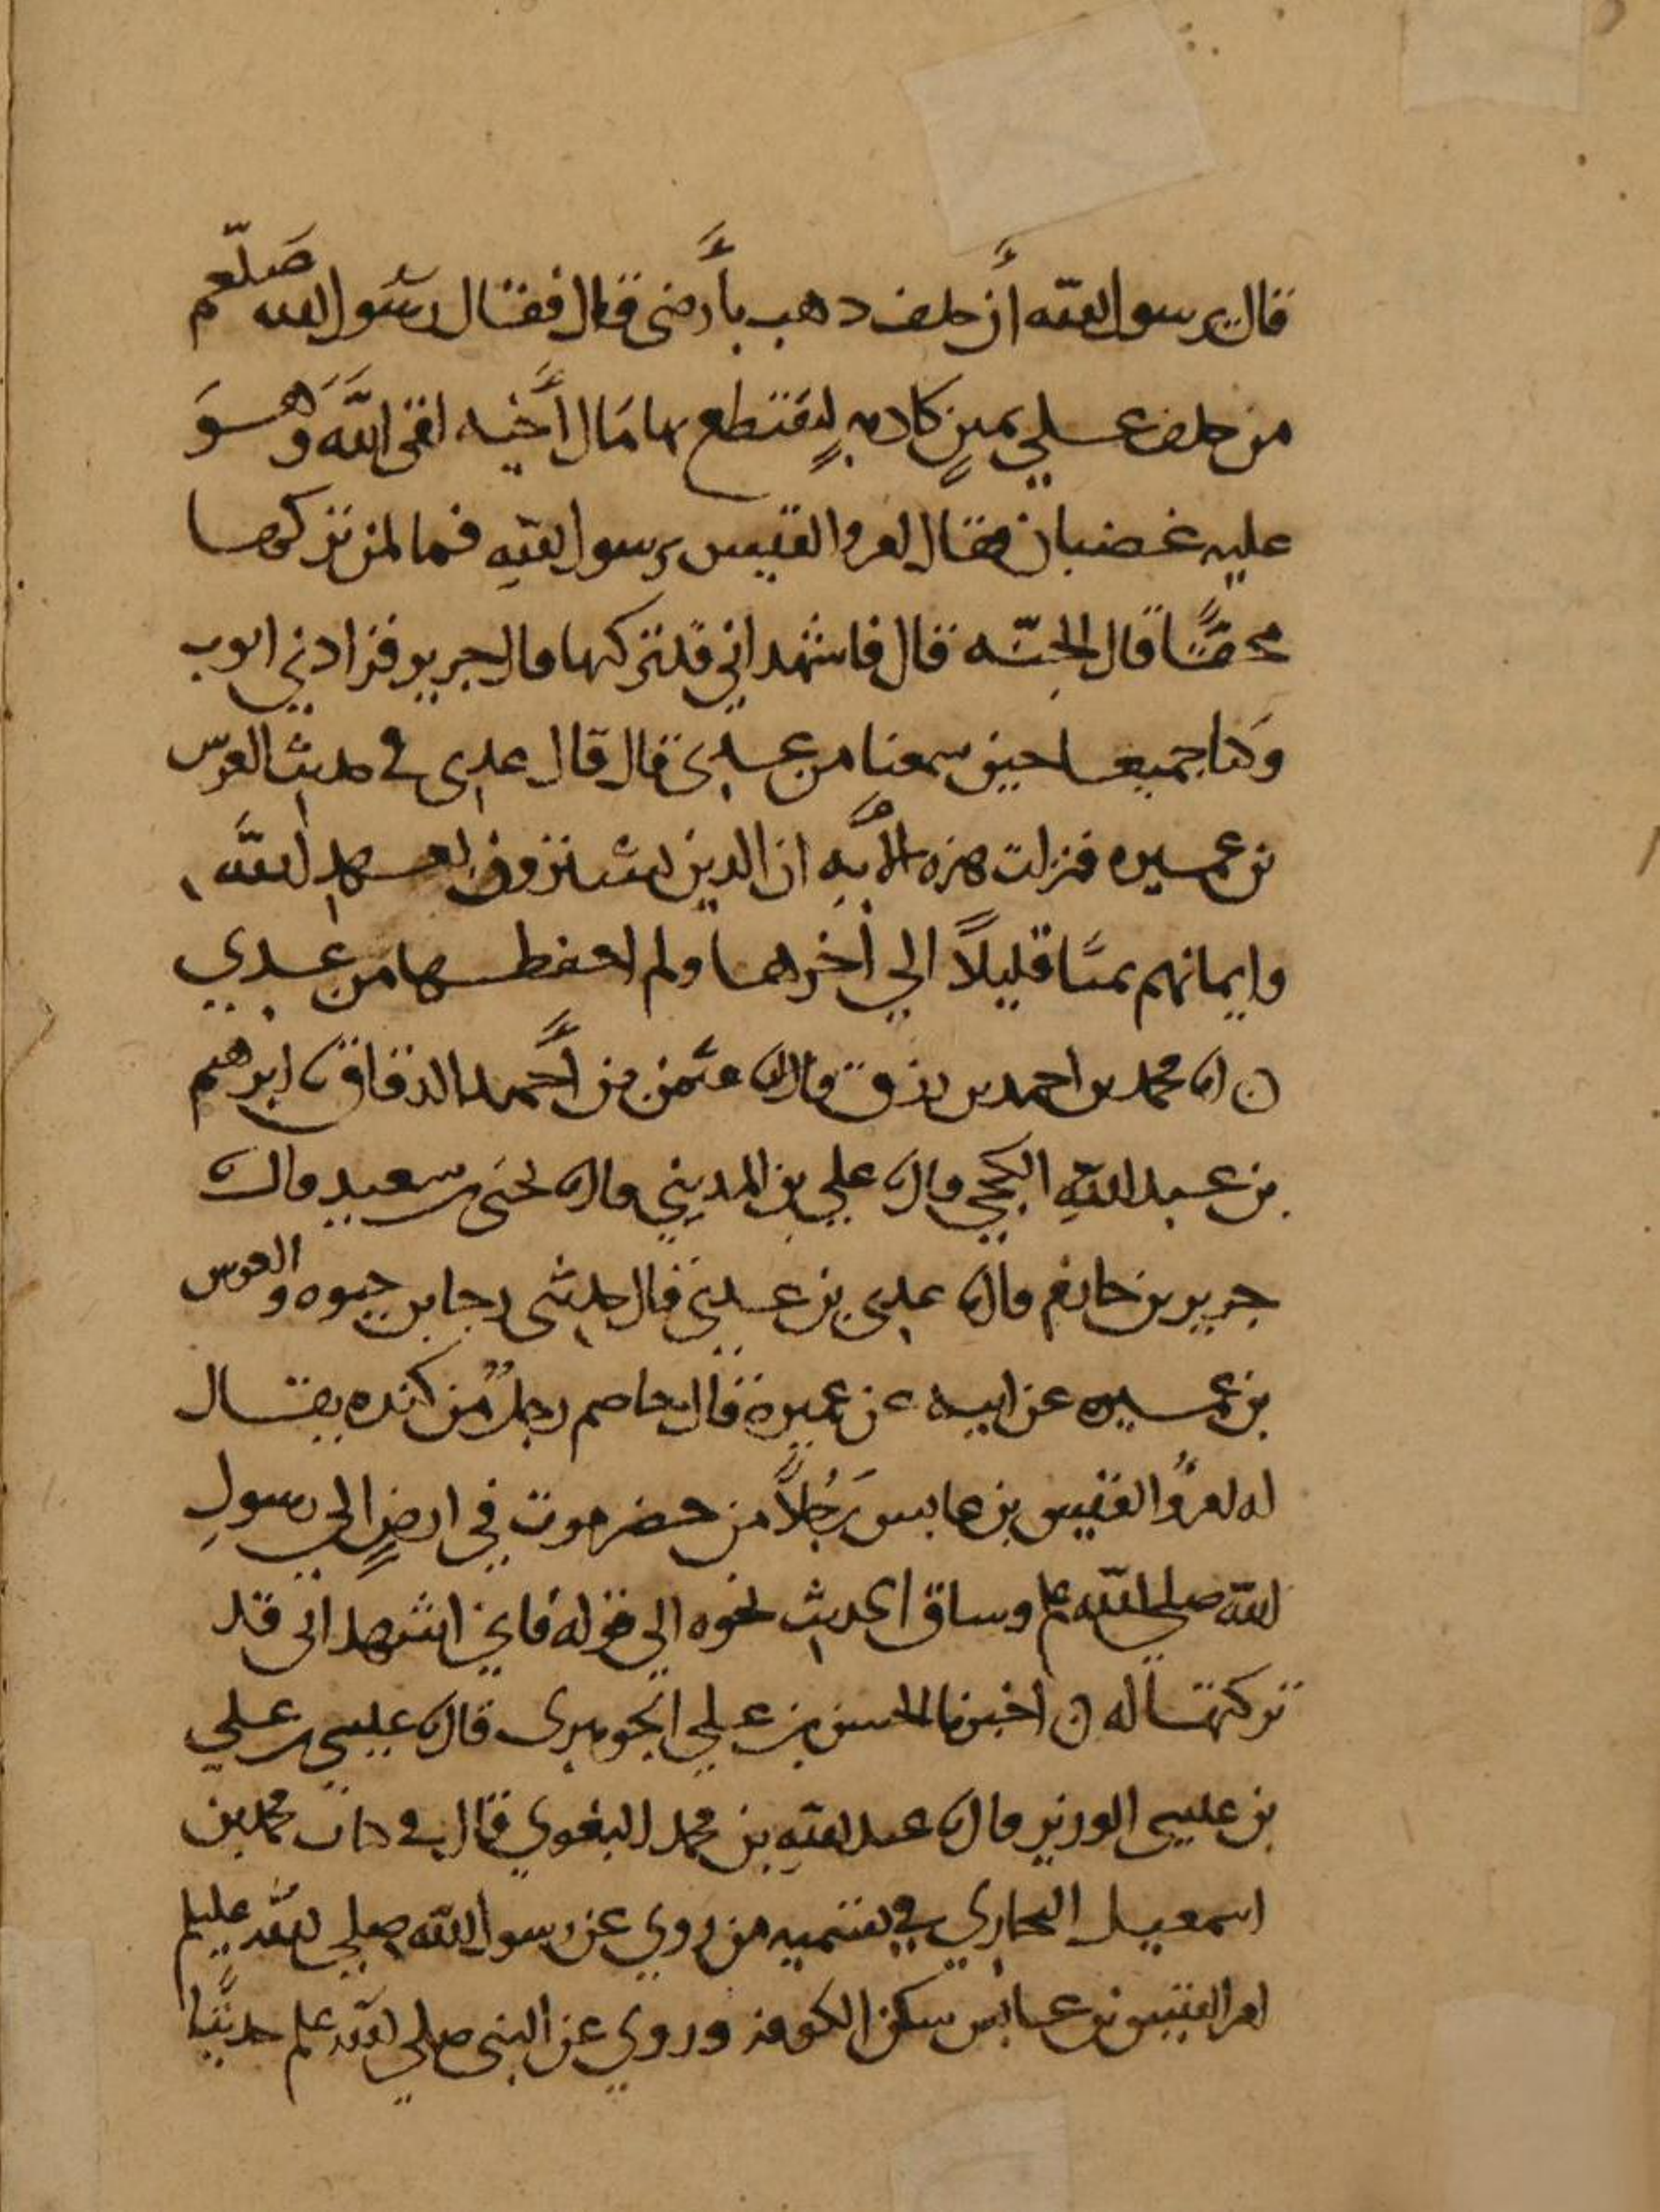 قال يرسول الله أن حلف دهب بأرضى قال فقال رسول الله صلعم
من حلف علي يمين كاذبه ليقتطع بها مال أخيه لقى الله وهو
عليه غضبان فقال امرو القيس يرسول الله فما لمن تركها
محقا قال الجنه قال فاشهد اني قد تركها قال جرير فزادني ايوب
وكنا جميعا حين سمعنا من عدى قال قال عدى في حديث العرس
بن عميره فنزلت هذه الآيه ان الذين يشترون بعهد الله
وايمانهم ثمنا قليلاً الي أخرها ولم احفظها من عدي
ن انا محمد بن احمد بن رزق قال انا عثمن بن أحمد الدقاق نا ابرهيم
بن عبد الله الكجي قال نا علي بن المديني قال نا يحيى بن سعيد قال نا
جرير بن حازم قال نا عدى بن عدي قال حدثنى رجا بن حيوه والعرس
بن عميره عن ابيه عن عميرة قال خاصم رجل من كنده يقال
له امرؤ القيس بن عابس رجلاً من حضرموت في ارض الي رسول
الله صلي الله علم وساق الحديث نحوه الي قوله فاني اشهد انى قد
تركتها له ن اخبرنا الحسن بن علي الجوهرى قال نا عيسى بن علي
بن عيسى الوزير قال نا عبد الله بن محمد البغوي قال في كتاب محمد بن
اسمعيل البخاري في تسميه من روي عن رسول الله صلي الله عليلم
امرا القيس بن عابس سكن الكوفه وروي عن النبى صلي الله علم حديثا